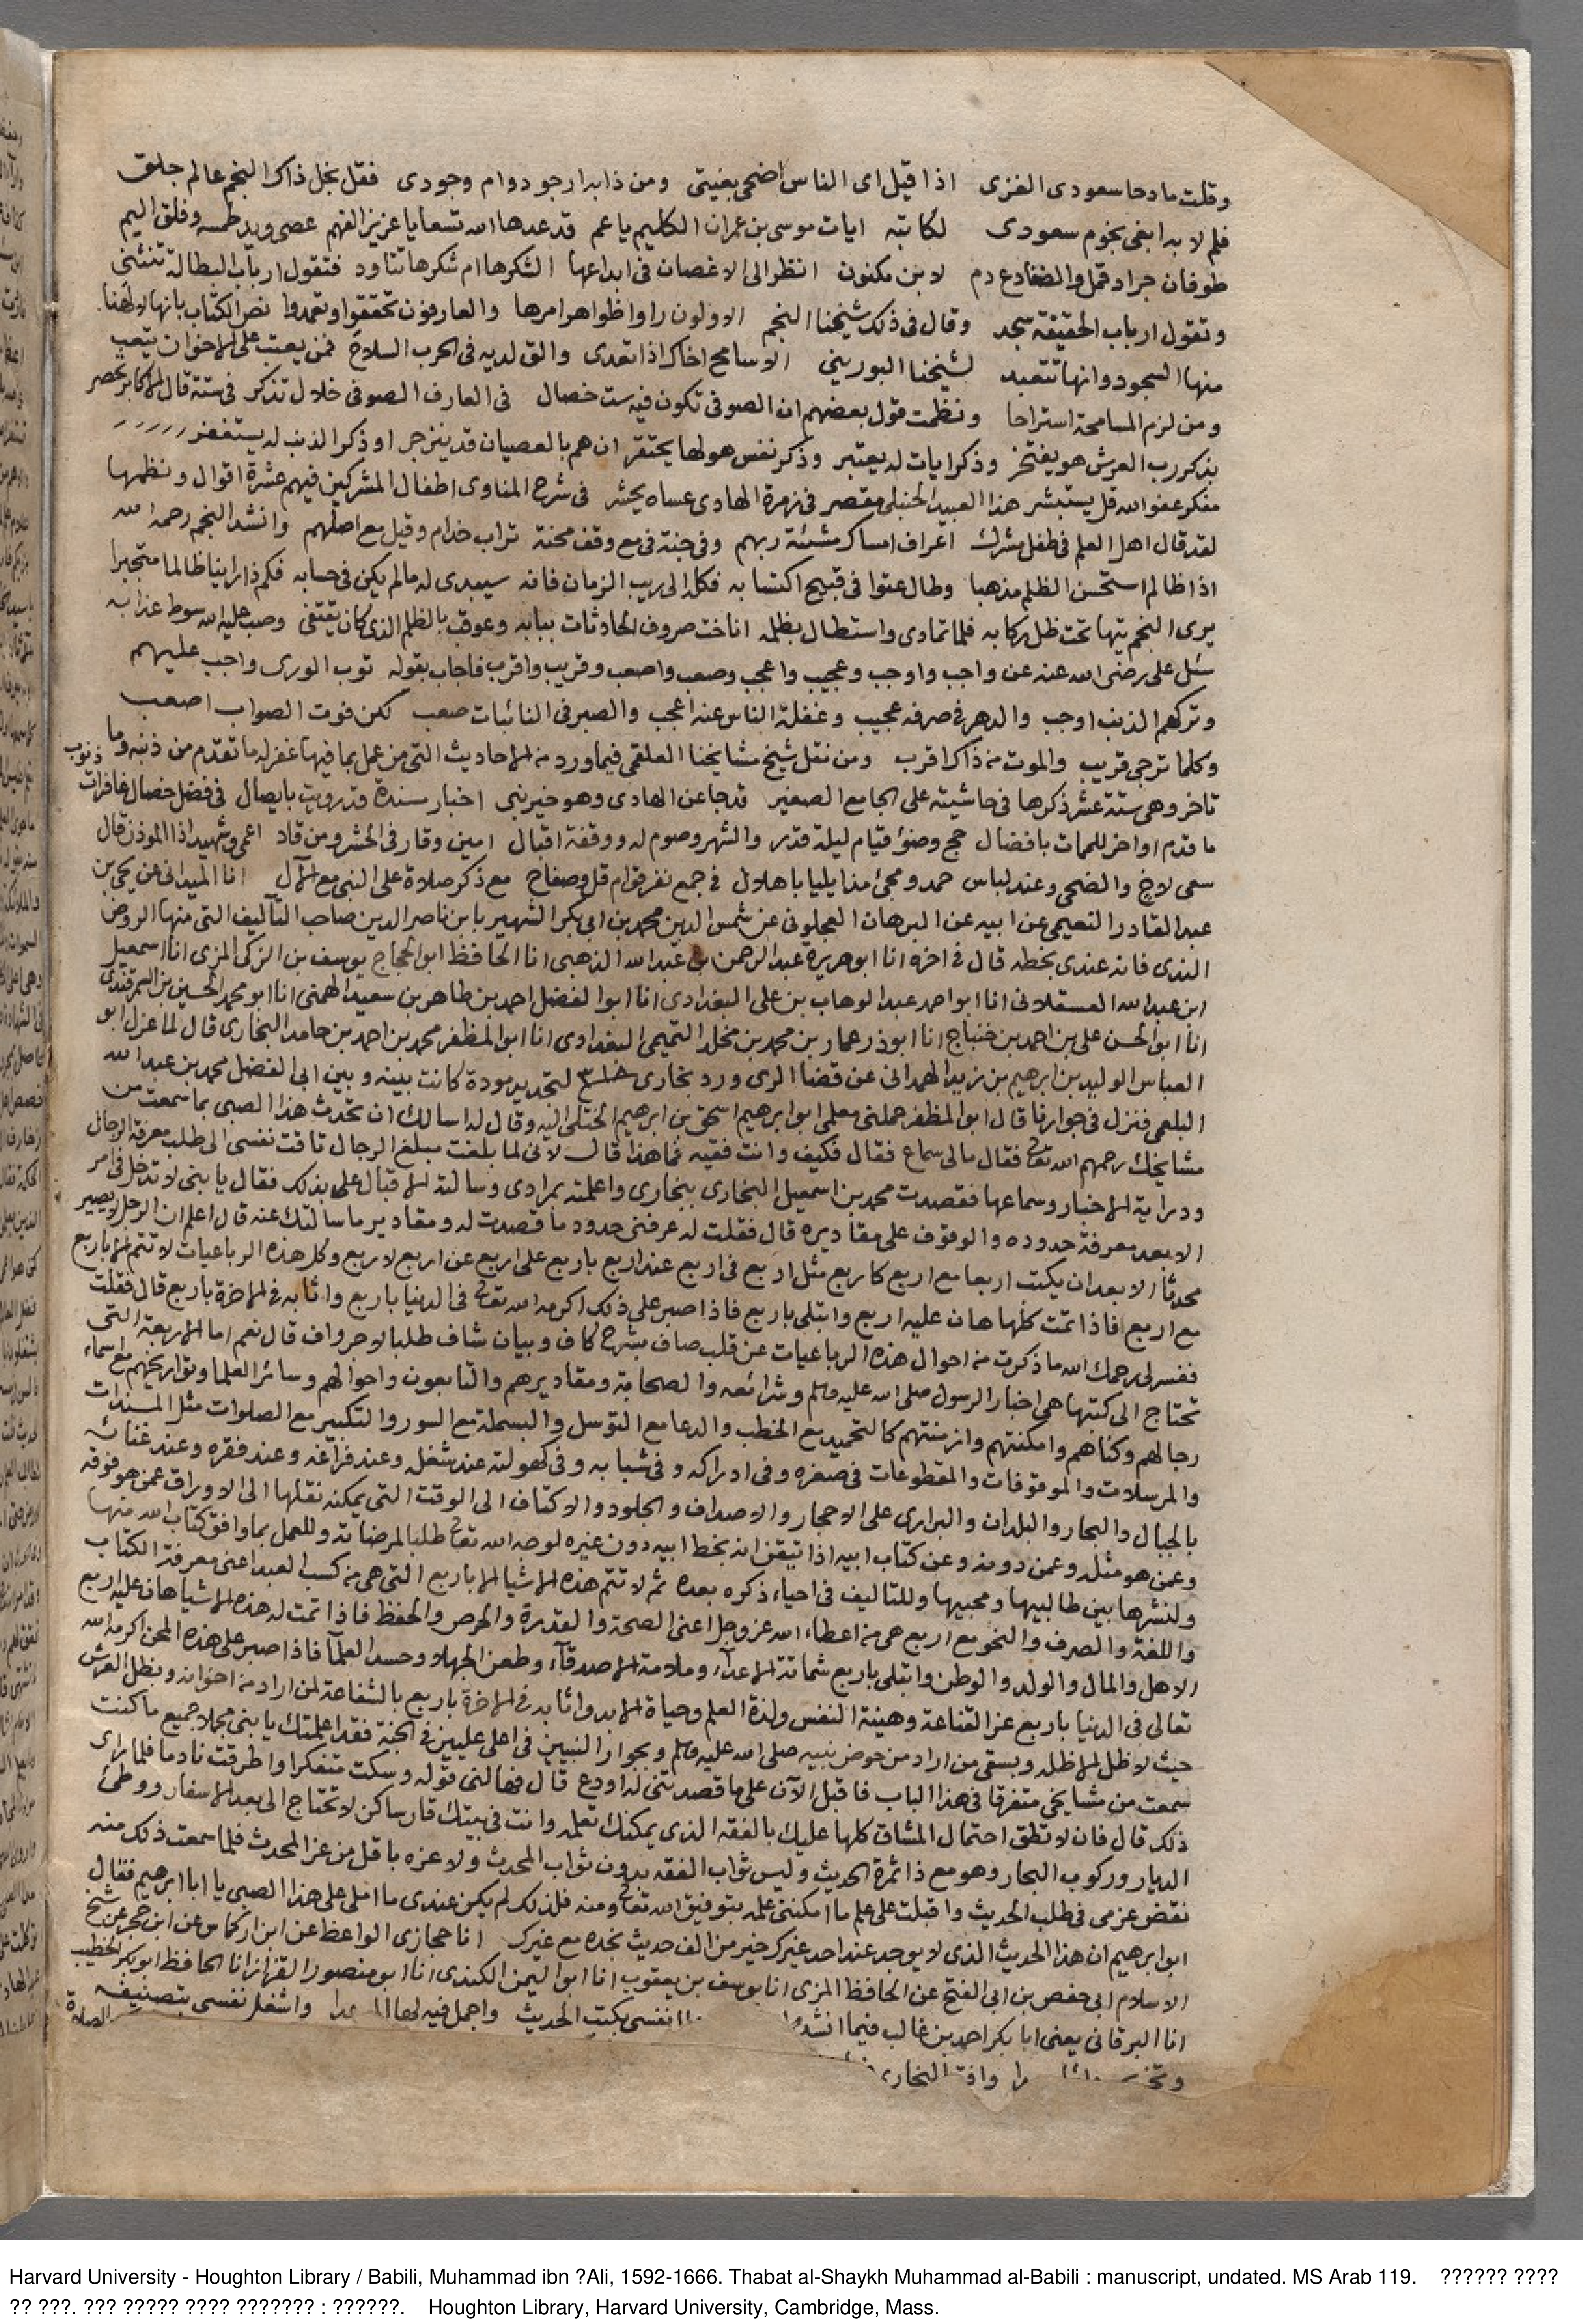 وقلت مادحا سعودى الغزى اذا قيل اى الناس اضحى بغيتى ومن ذا به ارجو دوام وجودى فقل نجل ذاك النجم عالم جلق
فلم لا به ابغى نجوم سعودى لكاتبه ايات موسى بن عمران الكليم يا عم قد عدها الله تسعا يا عزيز الفهم عصى ويد طمسه وفلق اليم
طوفان جراد قمل والضفادع دم لابن مكنون انظر الى الاغصان فى ابداعها الشكرها ام شكرها تتاود فتقول ارباب البطالة تنثنى
وتقول ارباب الحقيقة تسجد وقال فى ذلك شيخنا النجم الاولون راوا ظواهر امرها والعارفون تحققوا وتعمدوا نص الكتاب بانها لالهنا
منها السجود وانها تتعبد لشيخنا البورينى الا سامح اخاك اذا تعدى والق لديه فى الحرب السلاح فمن يعتب على الاخوان يتعب
ومن لزم المسامحة استراحا ونظمت قول بعضهم ان الصوفى تكون فيه ست خصال فى العارف الصوفى خلال تذكر فى ستة قال الاكابر تحصر
بذكر رب العرش هو يفتخر وذكر ايات له يعتبر وذكر نفس هو لها يحتقر ان هم بالعصيان قد ينزجر او ذكر الذنب له يستغفر
مفكر عفو الله قل يستبشر هذا العبيد الحنبلى مقصر فى زمرة الهادى عساه يحشر فى شرح المناوى اطفال المشركين فيهم عشرة اقوال ونظمها
لقد قال اهل العلم فى طفل مشرك اعراف امساك مشئة ربهم وفى جنة فى مع وقف محنة تراب خدام وقيل مع اصلهم وانشد النجم رحمه الله
اذا ظالم استحسن الظلم مذهبا وطال عتوا فى قبيح اكتسابه فكله الى ريب الزمان فانه سيبدى له مالم يكن فى حسابه فكم ذا راينا ظالما متجبرا
يرى النجم تيها تحت ظل ركابه فلما تمادى واستطال بظلمه اناخت صروف الحادثات ببابه وعوقب بالظلم الذى كان يقتفى وصب عليه الله سوط عذابه
سئل على رضى الله عنه عن واجب واوجب وعجيب واعجب وصعب واصعب وقريب واقرب فاجاب بقوله توب الورى واجب عليهم
وتركهم الذنب اوجب والدهر فى صرفه عجيب وغفلة الناس عنه اعجب والصبر فى النائبات صعب لكن فوت الصواب اصعب
وكلما ترجى قريب والموت من ذاك اقرب ومن نقل شيخ مشايخنا العلقمى فيما ورد من الاحاديث التى من عمل بما فيها غفر له ما تقدم من ذنبه وما
تاخر وهى ستة عشر ذكرها فى حاشيته على الجامع الصغير قد جا عن الهادى وهو خير نبى اخبار سندة قد رويت بايصال فى فضل خصال غافرات ذنوب
ما قدم او اخر للممات بافضال حج وضؤ قيام ليلة قدر والشهر وصوم له ووقفة اقبال امين وقار فى الحشر ومن قاد اعمى وشهيد اذا الموذن قال
سعى لاخ والضحى وعند لباس حمد ومجئ من ايليا باهلال فى جمع نفر قوام قل وصفاح مع ذكر صلاة على النبى مع الآل انا الميدانى عن يحى بن
عبد القادر النعيمى عن ابيه عن البرهان العجلونى عن شمس الدين محمد بن ابى بكر الشهير بابن ناصر الدين صاحب التآليف التى منها الروض
الندى فانه عندى بخطه قال فى اخره انا ابو هريرة عبد الرحمن بن عبد الله الذهبى انا الحافظ ابو الحجاج يوسف بن الزكى المزى انا اسمعيل
ابن عبد الله العسقلانى انا ابو احمد عبد الوهاب بن على البغدادى انا ابو الفضل احمد بن طاهر بن سعيد الهمنى انا ابو محمد الحسين بن السمرقندى
انا ابو الحسن على بن احمد بن خنباج انا ابو ذر عمار بن محمد بن مخلد التميمى البغدادى انا ابو المظفر محمد بن احمد بن حامد البخارى قال لما عزل ابو
العباس الوليد بن ابرهيم بن زيد الهمدانى عن قضا الرى ورد بخارى لتجديد مودة كانت بينه وبين ابى الفضل محمد بن عبد الله
البلعمى فنزل فى جوارنا قال ابو المظفر حملنى معلمى ابو ابرهيم اسحق بن ابرهيم الختلى اليه وقال له اسالك ان تحدث هذا الصبى بما سمعت من
مشايخك رحمهم الله تعالى فقال مالى سماع فقال فكيف وانت فقيه فما هذا قال لانى لما بلغت مبلغ الرجال تاقت نفسى الى طلب معرفة الرجال
ودراية الاخبار وسماعها فقصدت محمد بن اسمعيل البخارى ببخارى واعلمته بمرادى وسالته الاقبال على بذلك فقال يا بنى لا تدخل فى امر
الا بعد معرفة حدوده والوقوف على مقاديره قال فقلت له عرفنى حدود ما قصدت له ومقادير ما سالتك عنه قال اعلم ان الرجل لا يصير
محدثا الا بعد ان يكتب اربعا مع اربع كاربع مثل اربع فى اربع عند اربع باربع على اربع عن اربع لاربع وكل هذه الرباعيات لا تتم الا باربع
مع اربع فاذا تمت كلها هان عليه اربع وابتلى باربع فاذا صبر على ذلك اكرمه الله تعالى فى الدنيا باربع واثابه فى الاخرة باربع قال فقلت
ففسر لى رحمك الله ما ذكرت من احوال هذه الرباعيات عن قلب صاف بشرح كاف وبيان شاف طلبا لاجرواف قال نعم اما الاربعة التى
تحتاج الى كتبها هى اخبار الرسول صلى الله عليه وسلم وشرائعه والصحابة ومقاديرهم والتابعون واحوالهم وسائر العلما وتواريخهم مع اسماء
رجالهم وكناهم وامكنتهم وازمنتهم كالتحميد مع الخطب والدعا مع التوسل والبسملة مع السور والتكبير مع الصلوات مثل المسندات
والمرسلات والموقوفات والمقطوعات فى صغره وفى ادراكه وفى شبابه وفى كهولته عند شغله وعند فراغه وعند فقره وعند غنائه
بالجبال والبحار والبلدان والبرارى على الاحجار والاصداف والجلود والاكتاف الى الوقت التى يمكنه نقلها الى الاوراق عمن هو فوقه
وعمن هو مثله وعمن دونه وعن كتاب ابيه اذا تيقن انه بخط ابيه دون غيره لوجه الله تعالى طلبا لمرضاته وللعمل بما وافق كتاب الله منها
ولنشرها بين طالبيها ومحبيها وللتاليف فى احياء ذكره بعده ثم لا تتم هذه الاشيا الا باربع التى هى من كسب العبد اعنى معرفة الكتاب
واللغة والصرف والنحو مع اربع هى من اعطاء الله عز وجل اعنى الصحة والقدرة والحرص والحفظ فاذا تمت له هذه الاشيا هان عليه اربع
الاهل والمال والولد والوطن وابتلى باربع شماتة الاعدآء وملامة الاصدقآء وطعن الجهلا وحسد العلمآ فاذا صبر على هذه المحن اكرمه الله
تعالى فى الدنيا باربع عز القناعة وهيبة النفس ولذة العلم وحياة الابد واثابه فى الاخرة باربع بالشفاعة لمن اراد من اخوانه وبظل العرش
حيث لا ظل الا ظله وبسقى من اراد من حوض نبيه صلى الله عليه وسلم وبجوار النبيين فى اعلى عليين فى الجنة فقد اعلمتك يا بنى مجملا جميع ما كنت
سمعت من مشايخى متفرقا فى هذا الباب فاقبل الآن على ما قصدتنى له او دع قال فهالنى قوله وسكت متفكرا واطرقت نادما فلما راى
ذلك قال فان لا تطق احتمال المشاق كلها عليك بالفقه الذى يمكنك تعلمه وانت فى بيتك قار ساكن لا تحتاج الى بعد الاسفار ووطئ
الديار وركوب البحار وهو مع ذا ثمرة الحديث وليس ثواب الفقه بدون ثواب المحدث ولا عزه باقل من عز المحدث فلما سمعت ذلك منه
نقض عزمى فى طلب الحديث واقبلت على علم ما امكننى علمه بتوفيق الله تعالى ومنه فلذلك لم يكن عندى ما املى على هذا الصبى يا ابا ابرهيم فقال
ابو ابرهيم ان هذا الحديث الذى لا يوجد عند احد غيرك خير من الف حديث نجده مع غيرك انا حجازى الواعظ عن ابن اركماس عن ابن حجر عن شيخ
الاسلام ابى حفص بن ابى الفتح عن الحافظ المزى انا يوسف بن يعقوب انا ابو اليمن الكندى انا ابو منصور القزاز انا الحافظ ابو بكر الخطيب
انا البرقانى يعنى ابا بكر احمد بن غالب فيما انشد نفسى بكتب الحديث واجمل فيه واشغل نفسى بتصنيفه